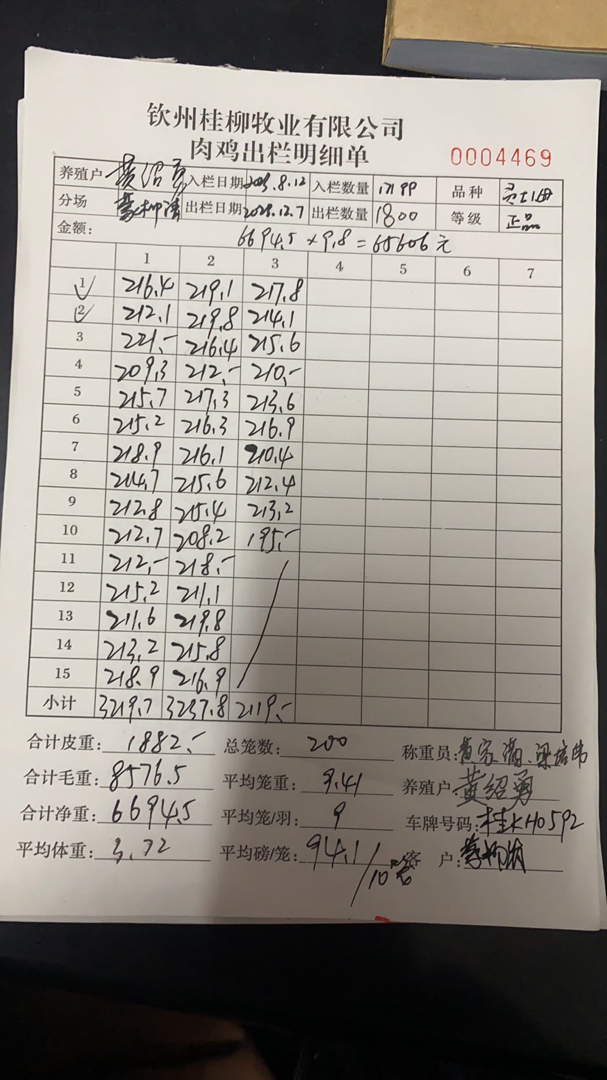 钦州桂柳牧业有限公司
肉鸡出栏明细单 0004469
养殖户 黄绍勇 入栏日期 8.12 入栏数量 品种
分场 出栏日期 12.7 出栏数量 1800 等级 正品
金额: 6694.5×9.8=65606元
1 2 3 4 5 6 7
1 216.4 219.1 217.8
2 212.1 219.8 214.1
3 221.- 216.4 215.6
4 209.3 212.- 210.-
5 215.7 217.3 213.6
6 215.2 216.3 216.9
7 218.9 216.1 210.4
8 214.7 215.6 212.4
9 212.8 215.4 213.2
10 212.7 208.2 195.-
11 212.- 218.-
12 215.2 211.1
13 211.6 219.8
14 213.2 215.8
15 218.9 216.9
小计 3219.7 3237.8 2119.-
合计皮重: 1882.- 总笼数: 200 称重员:
合计毛重: 8576.5 平均笼重: 9.41 养殖户 黄绍勇
合计净重: 6694.5 平均笼/羽: 9 车牌号码: 桂KH0592
平均体重: 3.72 平均磅/笼: 94.1/10 客 户: